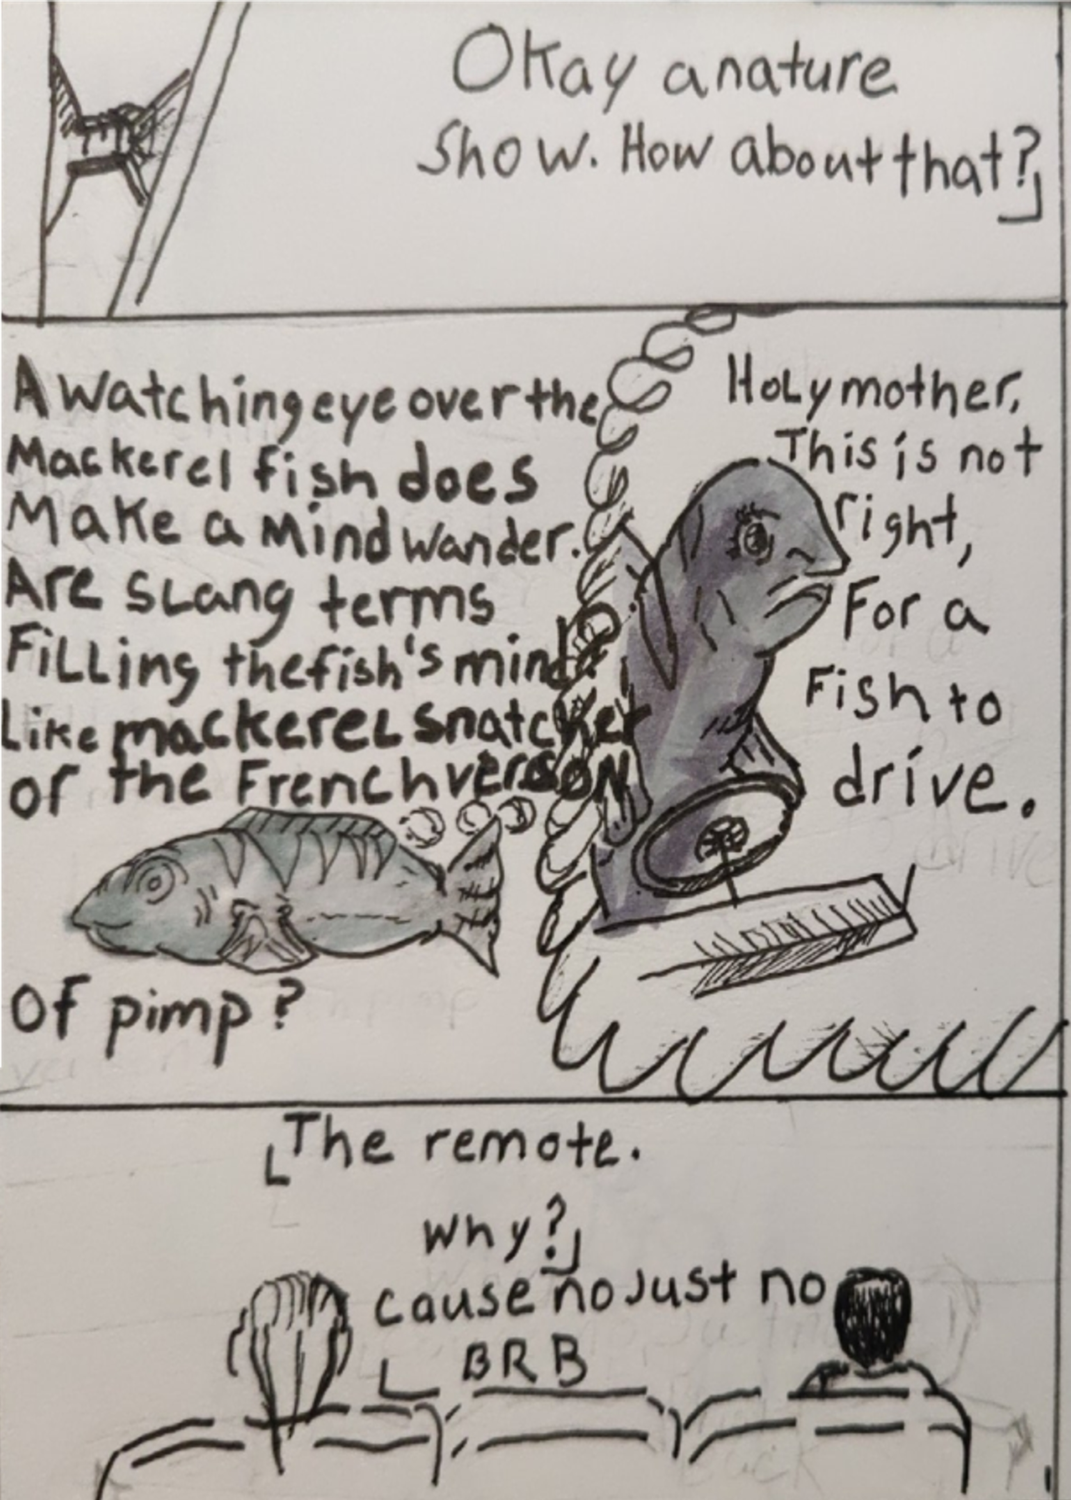 Okay a nature
Show. How about that?
A watching eye over the
Mackerel fish does
Make a Mind wander.
Are slang terms
Filling the fish's mind?
Like mackerel snatcher
or the French version
of pimp?
Holy mother,
This is not
right,
For a
Fish to
drive.
The remote.
Why?
cause no just no
BRB